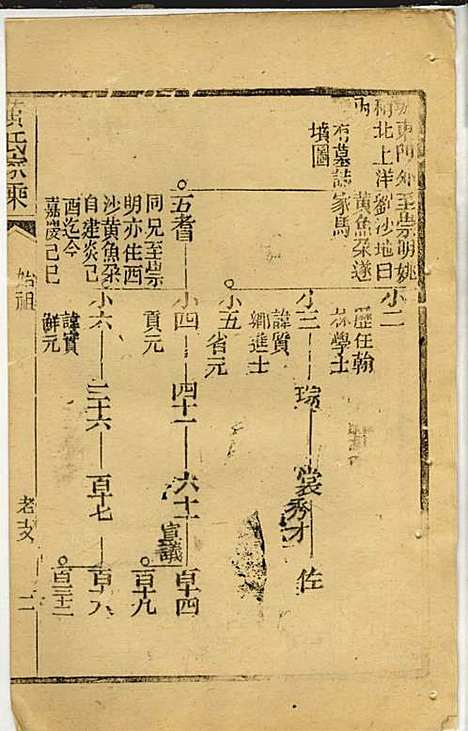 東門外至崇明姚
北上洋劉沙地曰
黃魚垜遂
有墓誌家馬
墳圖
小二
歷任翰
林學士
小三
瑞
裳秀才
佐
諱質
鄉進士
小五
省元
五耆
小四
四十一
六十一
宣議
百十四
百十九
貢元
同兄至崇
明亦住西
沙黃魚垜
自建炎己
酉迄今
嘉慶己巳
小六
三十六
百十七
百十六
百三十二
諱贊
解元
黃氏家乘
始祖
老支
二